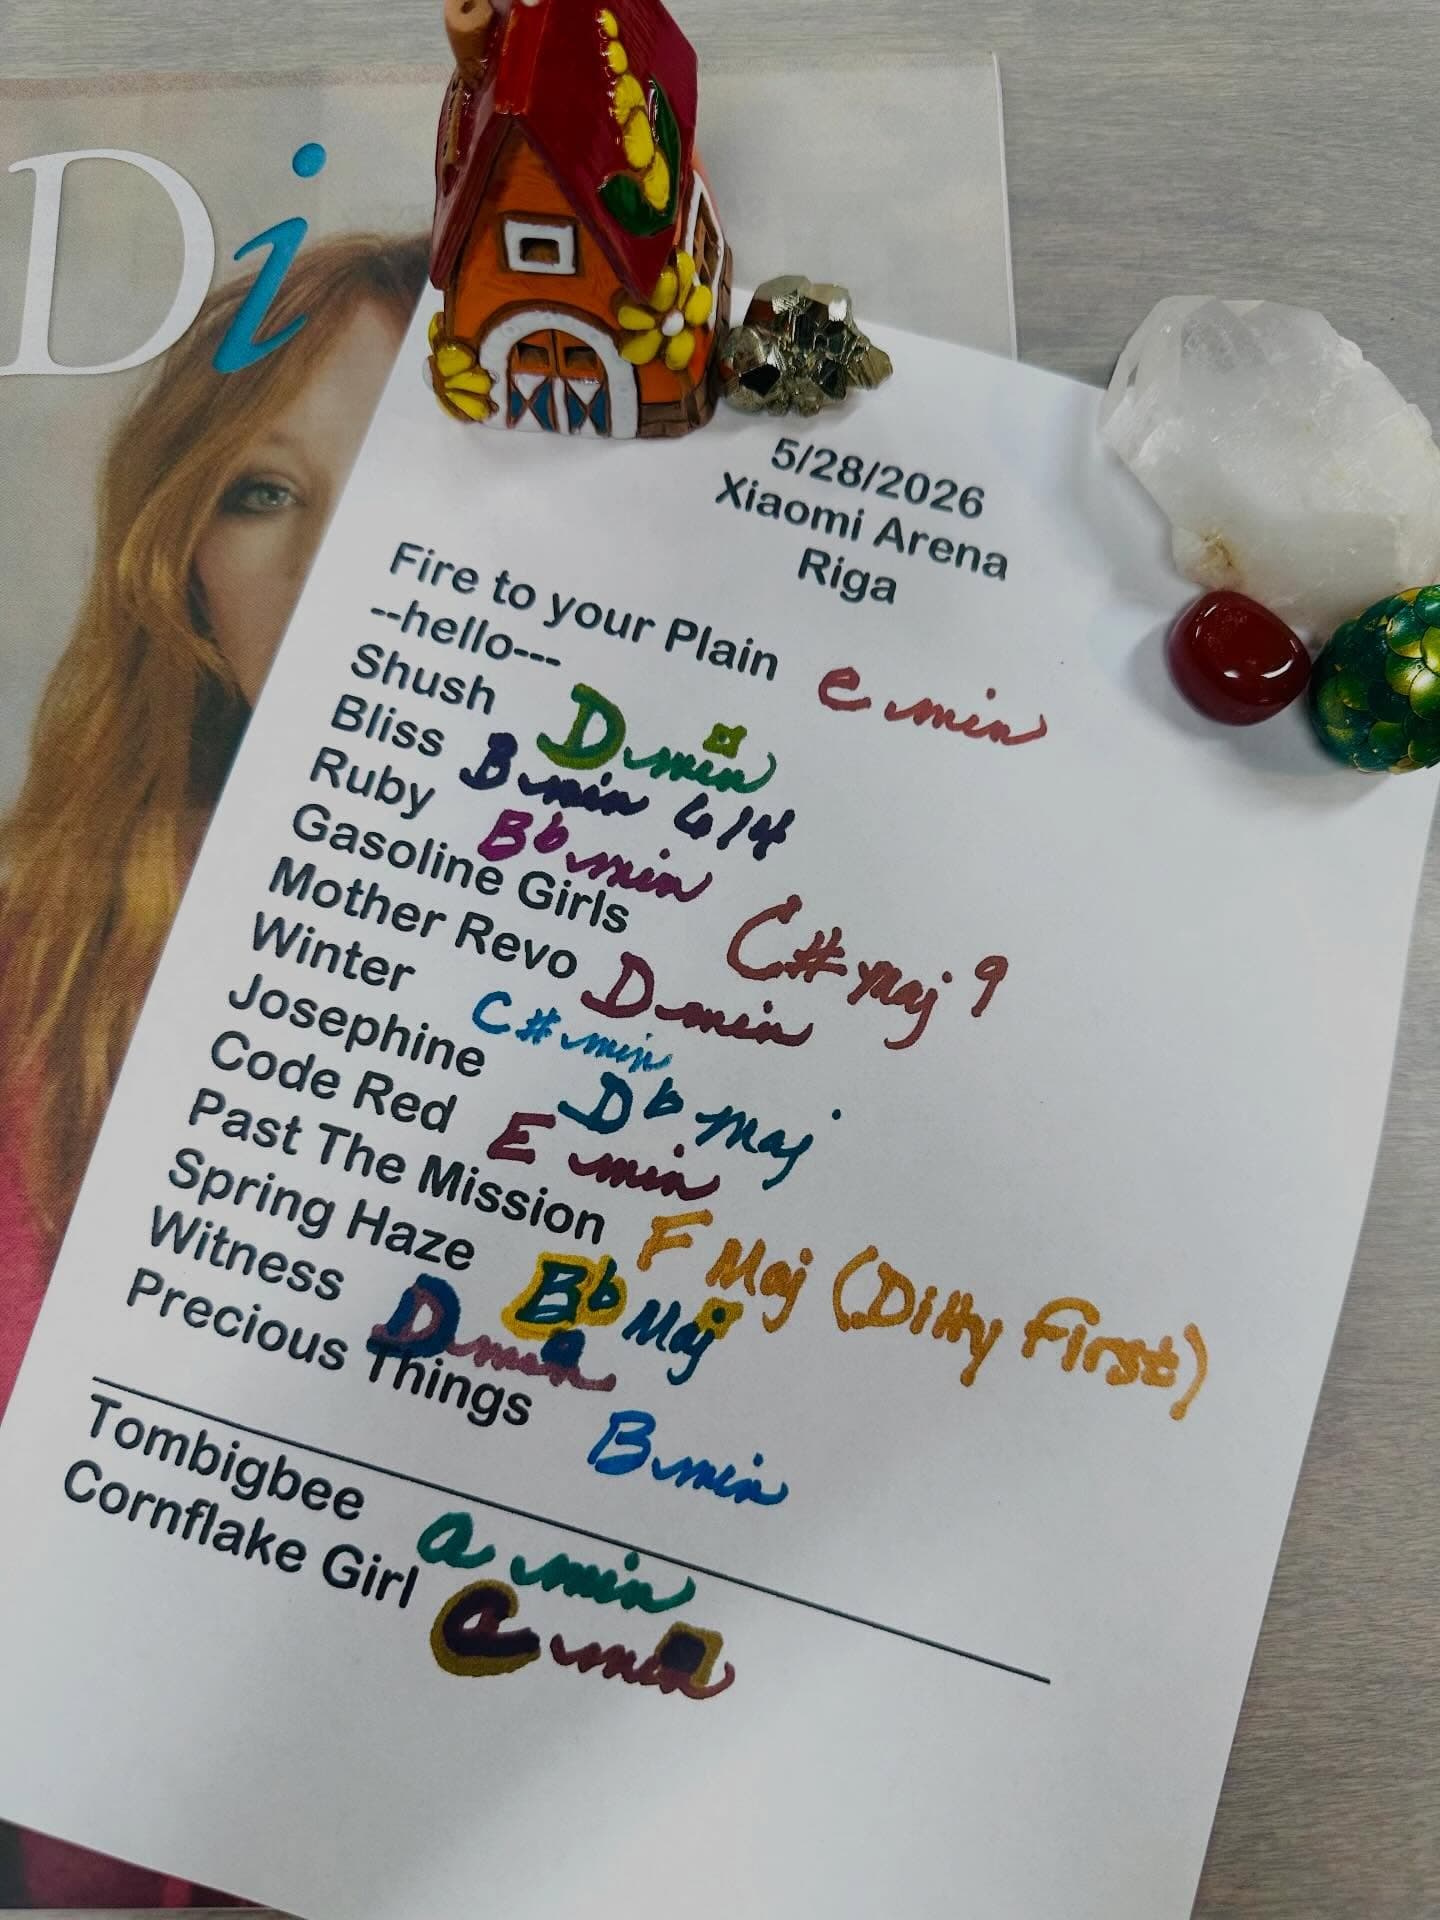 Di
5/28/2026
Xiaomi Arena
Riga
Fire to your Plain e min
--hello---
Shush D min
Bliss B min 6/4
Ruby Bb min
Gasoline Girls C# Maj 9
Mother Revo D min
Winter C# min
Josephine Db Maj
Code Red E min
Past The Mission F Maj (Ditty First)
Spring Haze Bb Maj
Witness D min
Precious Things B min
Tombigbee a min
Cornflake Girl min